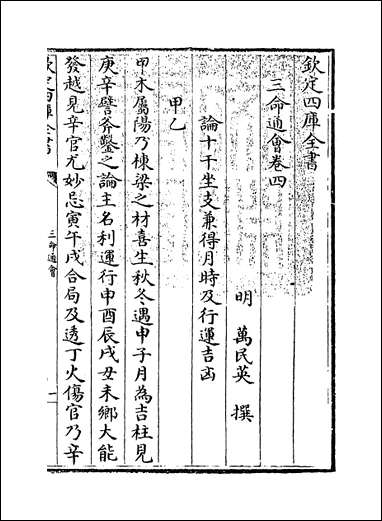 欽定四庫全書
三命通會卷四
明　萬民英　撰
論十干坐支兼得月時及行運吉凶
甲乙
甲木屬陽乃棟梁之材喜生秋冬遇申子月為吉柱見
庚辛譬斧鑿之論主名利運行申酉辰戌丑未鄉大能
發越見辛官尤妙忌寅午戌合局及透丁火傷官乃辛
欽定四庫全書
三命通會
一